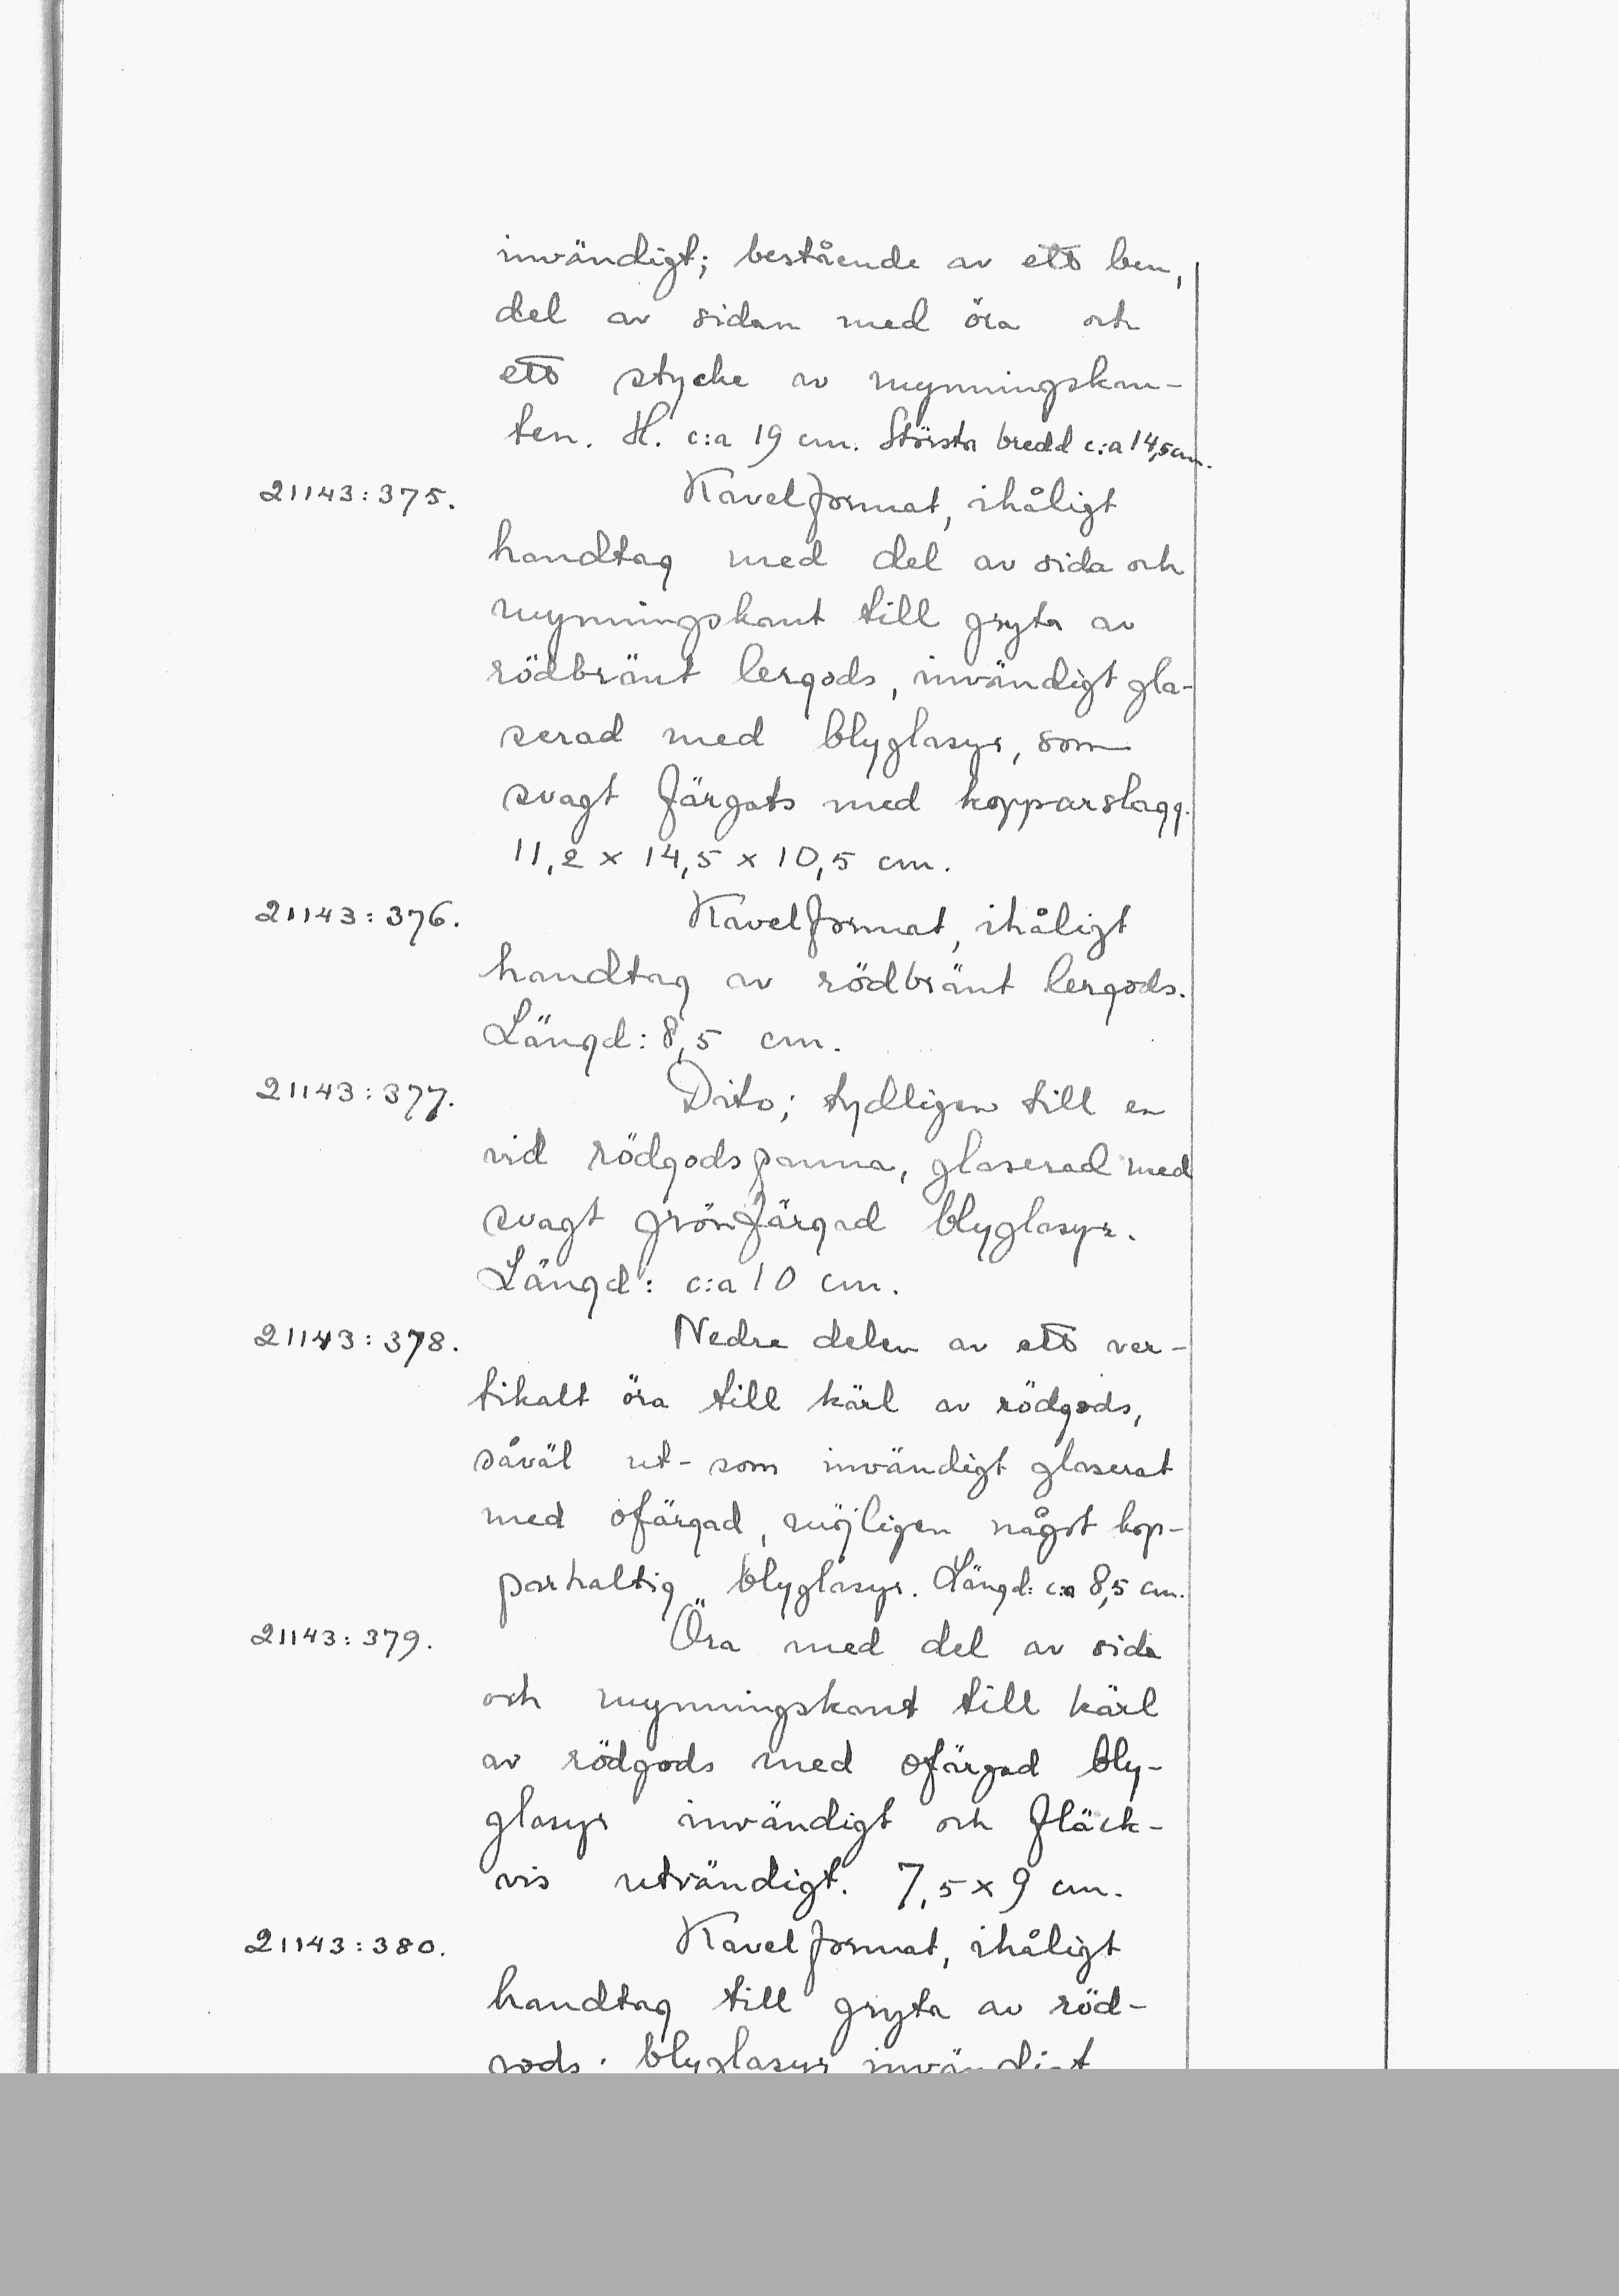 invändigt; bestående av ett ben,
del av sidan med öra och
ett stycke av mynningskan-
ten. H. c:a 19 cm. Största bredd c:a 14,5 cm.
21143:375. Kavelformat, ihåligt
handtag med del av sida och
mynningskant till gryta av
rödbränt lergods, invändigt gla-
serad med blyglasyr, som
svagt färgats med kopparslagg.
11,2 x 14,5 x 10,5 cm.
21143:376. Kavelformat, ihåligt
handtag av rödbränt lergods.
Längd: 8,5 cm.
21143:377. Dito; tydligen till en
vid rödgodspanna, glaserad med
svagt grönfärgad blyglasyr.
Längd: c:a 10 cm.
21143:378. Nedre delen av ett ver-
tikalt öra till kärl av rödgods,
såväl ut- som invändigt glaserat
med ofärgad, möjligen något kop-
parhaltig blyglasyr. Längd: c:a 8,5 cm.
21143:379. Öra med del av sida
och mynningskant till kärl
av rödgods med ofärgad bly-
glasyr invändigt och fläck-
vis utvändigt. 7,5 x 9 cm.
21143:380. Kavelformat, ihåligt
handtag till gryta av röd-
gods; blyglasyr invändigt